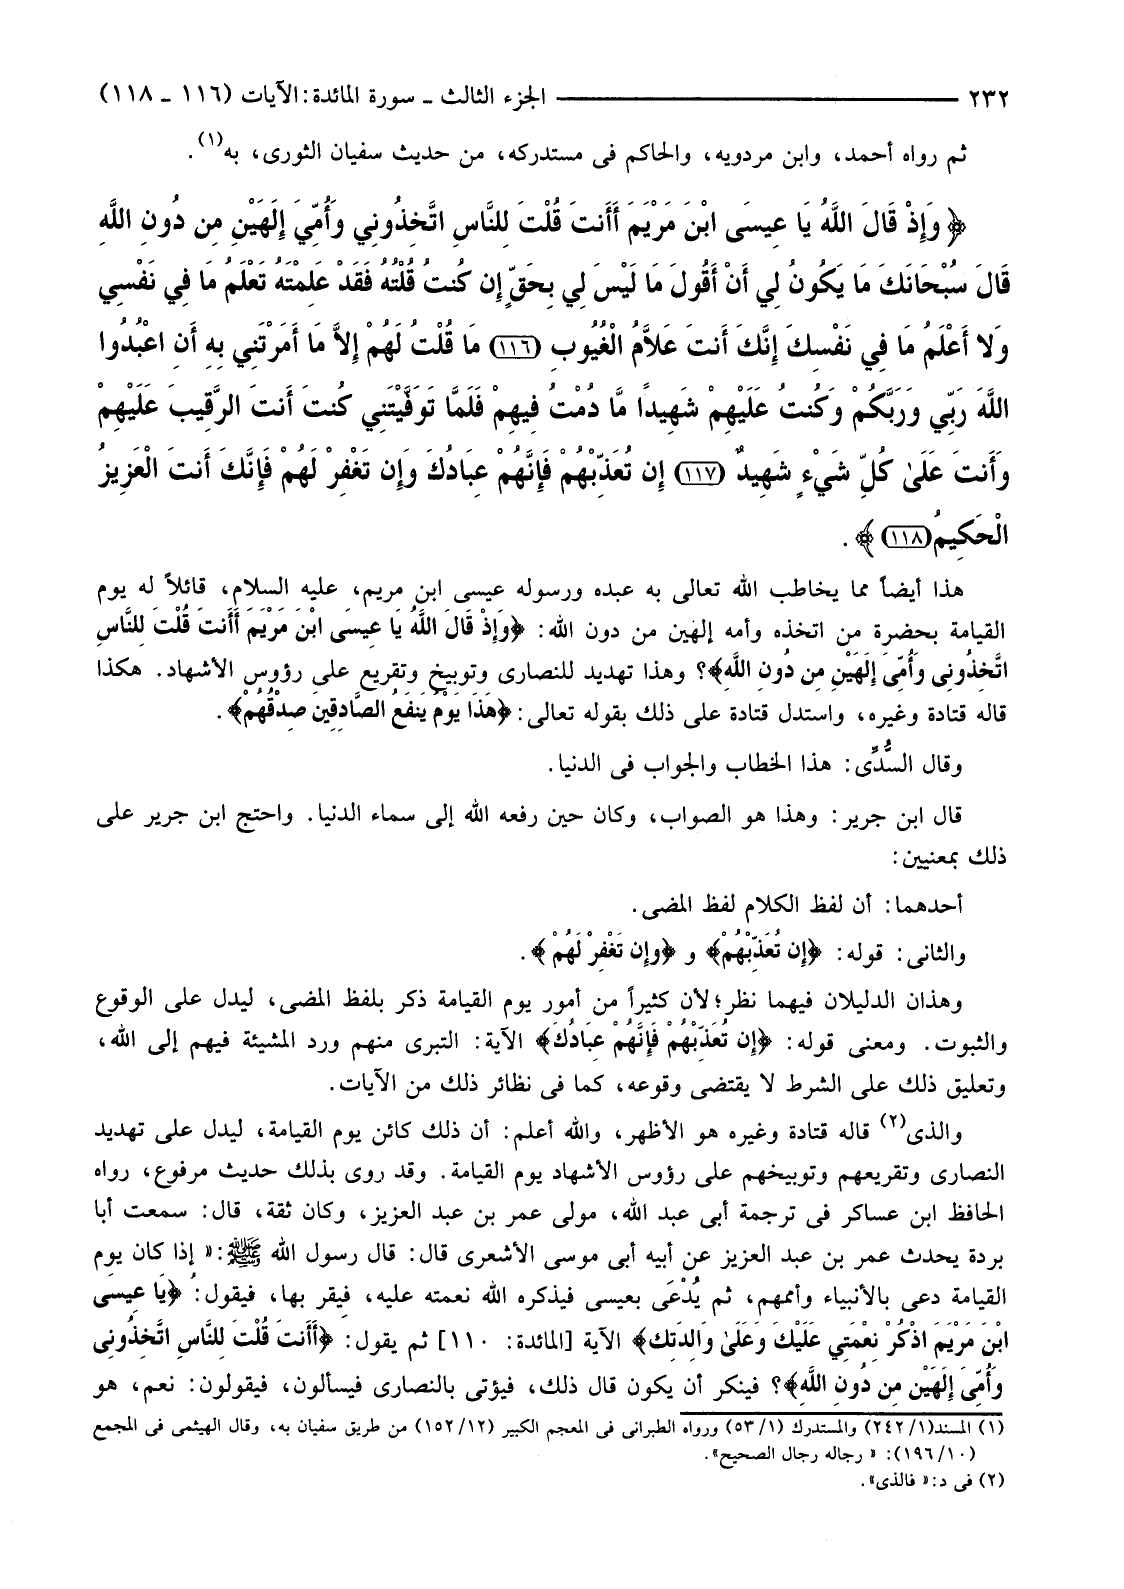 ٢٣٢ ـــــــــــــــــــــــــــــــ الجزء الثالث ـ سورة المائدة: الآيات (١١٦ ـ ١١٨)
ثم رواه أحمد، وابن مردويه، والحاكم فى مستدركه، من حديث سفيان الثورى، به(١).
﴿ وَإِذْ قَالَ اللَّهُ يَا عِيسَى ابْنَ مَرْيَمَ أَأَنتَ قُلْتَ لِلنَّاسِ اتَّخِذُونِي وَأُمِّيَ إِلَهَيْنِ مِن دُونِ اللَّهِ
قَالَ سُبْحَانَكَ مَا يَكُونُ لِي أَنْ أَقُولَ مَا لَيْسَ لِي بِحَقٍّ إِن كُنتُ قُلْتُهُ فَقَدْ عَلِمْتَهُ تَعْلَمُ مَا فِي نَفْسِي
وَلا أَعْلَمُ مَا فِي نَفْسِكَ إِنَّكَ أَنتَ عَلاَّمُ الْغُيُوبِ (١١٦) مَا قُلْتُ لَهُمْ إِلاَّ مَا أَمَرْتَنِي بِهِ أَنِ اعْبُدُوا
اللَّهَ رَبِّي وَرَبَّكُمْ وَكُنتُ عَلَيْهِمْ شَهِيدًا مَّا دُمْتُ فِيهِمْ فَلَمَّا تَوَفَّيْتَنِي كُنتَ أَنتَ الرَّقِيبَ عَلَيْهِمْ
وَأَنتَ عَلَىٰ كُلِّ شَيْءٍ شَهِيدٌ (١١٧) إِن تُعَذِّبْهُمْ فَإِنَّهُمْ عِبَادُكَ وَإِن تَغْفِرْ لَهُمْ فَإِنَّكَ أَنتَ الْعَزِيزُ
الْحَكِيمُ (١١٨) ﴾ .
هذا أيضاً مما يخاطب الله تعالى به عبده ورسوله عيسى ابن مريم، عليه السلام، قائلاً له يوم
القيامة بحضرة من اتخذه وأمه إلهين من دون الله: ﴿وَإِذْ قَالَ اللَّهُ يَا عِيسَى ابْنَ مَرْيَمَ أَأَنتَ قُلْتَ لِلنَّاسِ
اتَّخِذُونِى وَأُمِّىَ إِلَهَيْنِ مِن دُونِ اللَّهِ﴾؟ وهذا تهديد للنصارى وتوبيخ وتقريع على رؤوس الأشهاد. هكذا
قاله قتادة وغيره، واستدل قتادة على ذلك بقوله تعالى: ﴿هَذَا يَوْمُ يَنفَعُ الصَّادِقِينَ صِدْقُهُمْ﴾.
وقال السُّدِّى: هذا الخطاب والجواب فى الدنيا.
قال ابن جرير: وهذا هو الصواب، وكان حين رفعه الله إلى سماء الدنيا. واحتج ابن جرير على
ذلك بمعنيين:
أحدهما: أن لفظ الكلام لفظ المضى.
والثانى: قوله: ﴿إِن تُعَذِّبْهُمْ﴾ و ﴿وإِن تَغْفِرْ لَهُمْ ﴾.
وهذان الدليلان فيهما نظر؛ لأن كثيراً من أمور يوم القيامة ذكر بلفظ المضى، ليدل على الوقوع
والثبوت. ومعنى قوله: ﴿إِن تُعَذِّبْهُمْ فَإِنَّهُمْ عِبَادُكَ﴾ الآية: التبرى منهم ورد المشيئة فيهم إلى الله،
وتعليق ذلك على الشرط لا يقتضى وقوعه، كما فى نظائر ذلك من الآيات.
والذى(٢) قاله قتادة وغيره هو الأظهر، والله أعلم: أن ذلك كائن يوم القيامة، ليدل على تهديد
النصارى وتقريعهم وتوبيخهم على رؤوس الأشهاد يوم القيامة. وقد روى بذلك حديث مرفوع، رواه
الحافظ ابن عساكر فى ترجمة أبى عبد الله، مولى عمر بن عبد العزيز، وكان ثقة، قال: سمعت أبا
بردة يحدث عمر بن عبد العزيز عن أبيه أبى موسى الأشعرى قال: قال رسول الله ﷺ: « إذا كان يوم
القيامة دعى بالأنبياء وأممهم، ثم يُدْعَى بعيسى فيذكره الله نعمته عليه، فيقر بها، فيقول: ﴿يَا عِيسَى
ابْنَ مَرْيَمَ اذْكُرْ نِعْمَتِي عَلَيْكَ وَعَلَىٰ وَالِدَتِكَ﴾ الآية [المائدة: ١١٠] ثم يقول: ﴿أَأَنتَ قُلْتَ لِلنَّاسِ اتَّخِذُونِى
وَأُمِّىَ إِلَهَيْنِ مِن دُونِ اللَّهِ﴾؟ فينكر أن يكون قال ذلك، فيؤتى بالنصارى فيسألون، فيقولون: نعم، هو
(١) المسند(٢٤٢/١) والمستدرك (٥٣/١) ورواه الطبرانى فى المعجم الكبير (١٥٢/١٢) من طريق سفيان به، وقال الهيثمى فى المجمع
(١٩٦/١٠): « رجاله رجال الصحيح».
(٢) فى د: « فالذى».